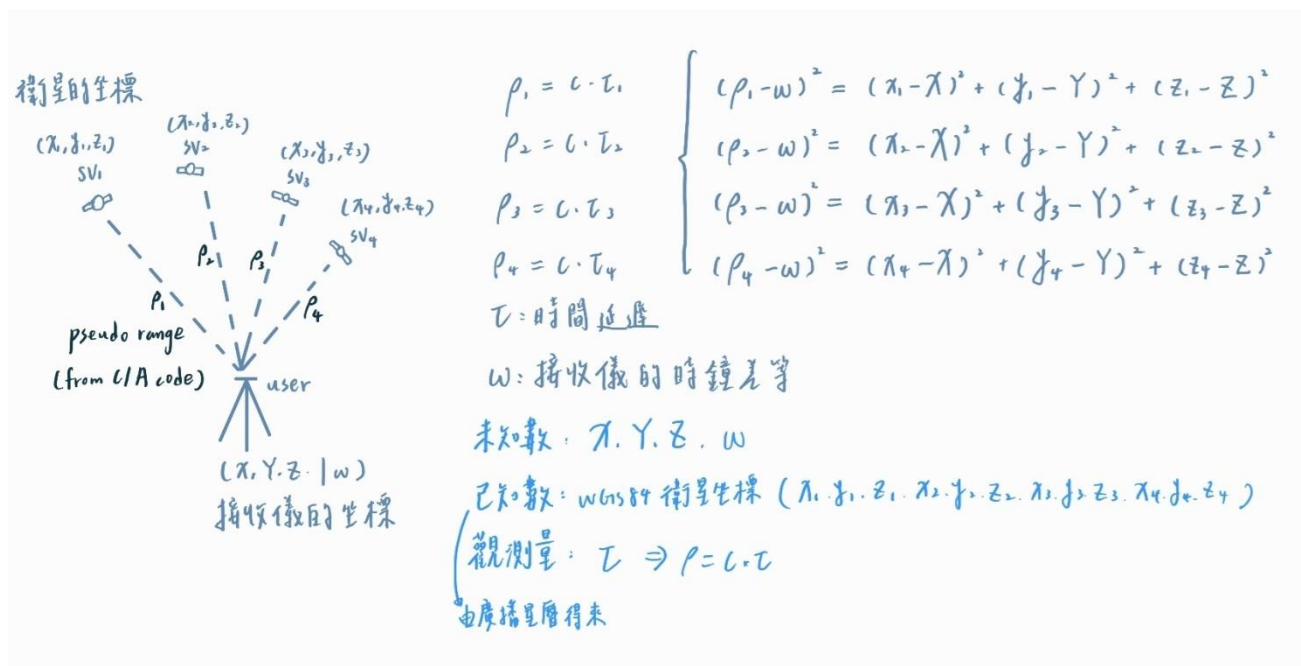 衛星的坐標
(x₁,y₁,z₁)
SV₁
(x₂,y₂,z₂)
SV₂
(x₃,y₃,z₃)
SV₃
(x₄,y₄,z₄)
SV₄
ρ₁
ρ₂
ρ₃
ρ₄
pseudo range
(from C/A code)
user
(X,Y,Z|w)
接收儀的坐標
ρ₁ = c·τ₁
ρ₂ = c·τ₂
ρ₃ = c·τ₃
ρ₄ = c·τ₄
(ρ₁-w)² = (x₁-X)² + (y₁-Y)² + (z₁-Z)²
(ρ₂-w)² = (x₂-X)² + (y₂-Y)² + (z₂-Z)²
(ρ₃-w)² = (x₃-X)² + (y₃-Y)² + (z₃-Z)²
(ρ₄-w)² = (x₄-X)² + (y₄-Y)² + (z₄-Z)²
τ:時間延遲
w:接收儀的時鐘差等
未知數:X.Y.Z.w
已知數:WGS84衛星坐標(x₁.y₁.z₁.x₂.y₂.z₂.x₃.y₃.z₃.x₄.y₄.z₄)
觀測量:τ ⇒ ρ=c·τ
由廣播星曆得來